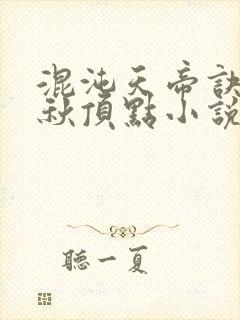 混沌天帝訣
秋頂點小說
聽一夏